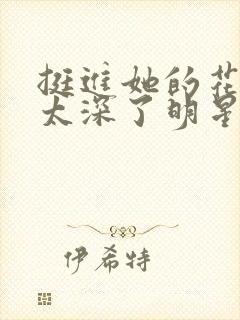 挺进她的花
太深了明星
伊希特